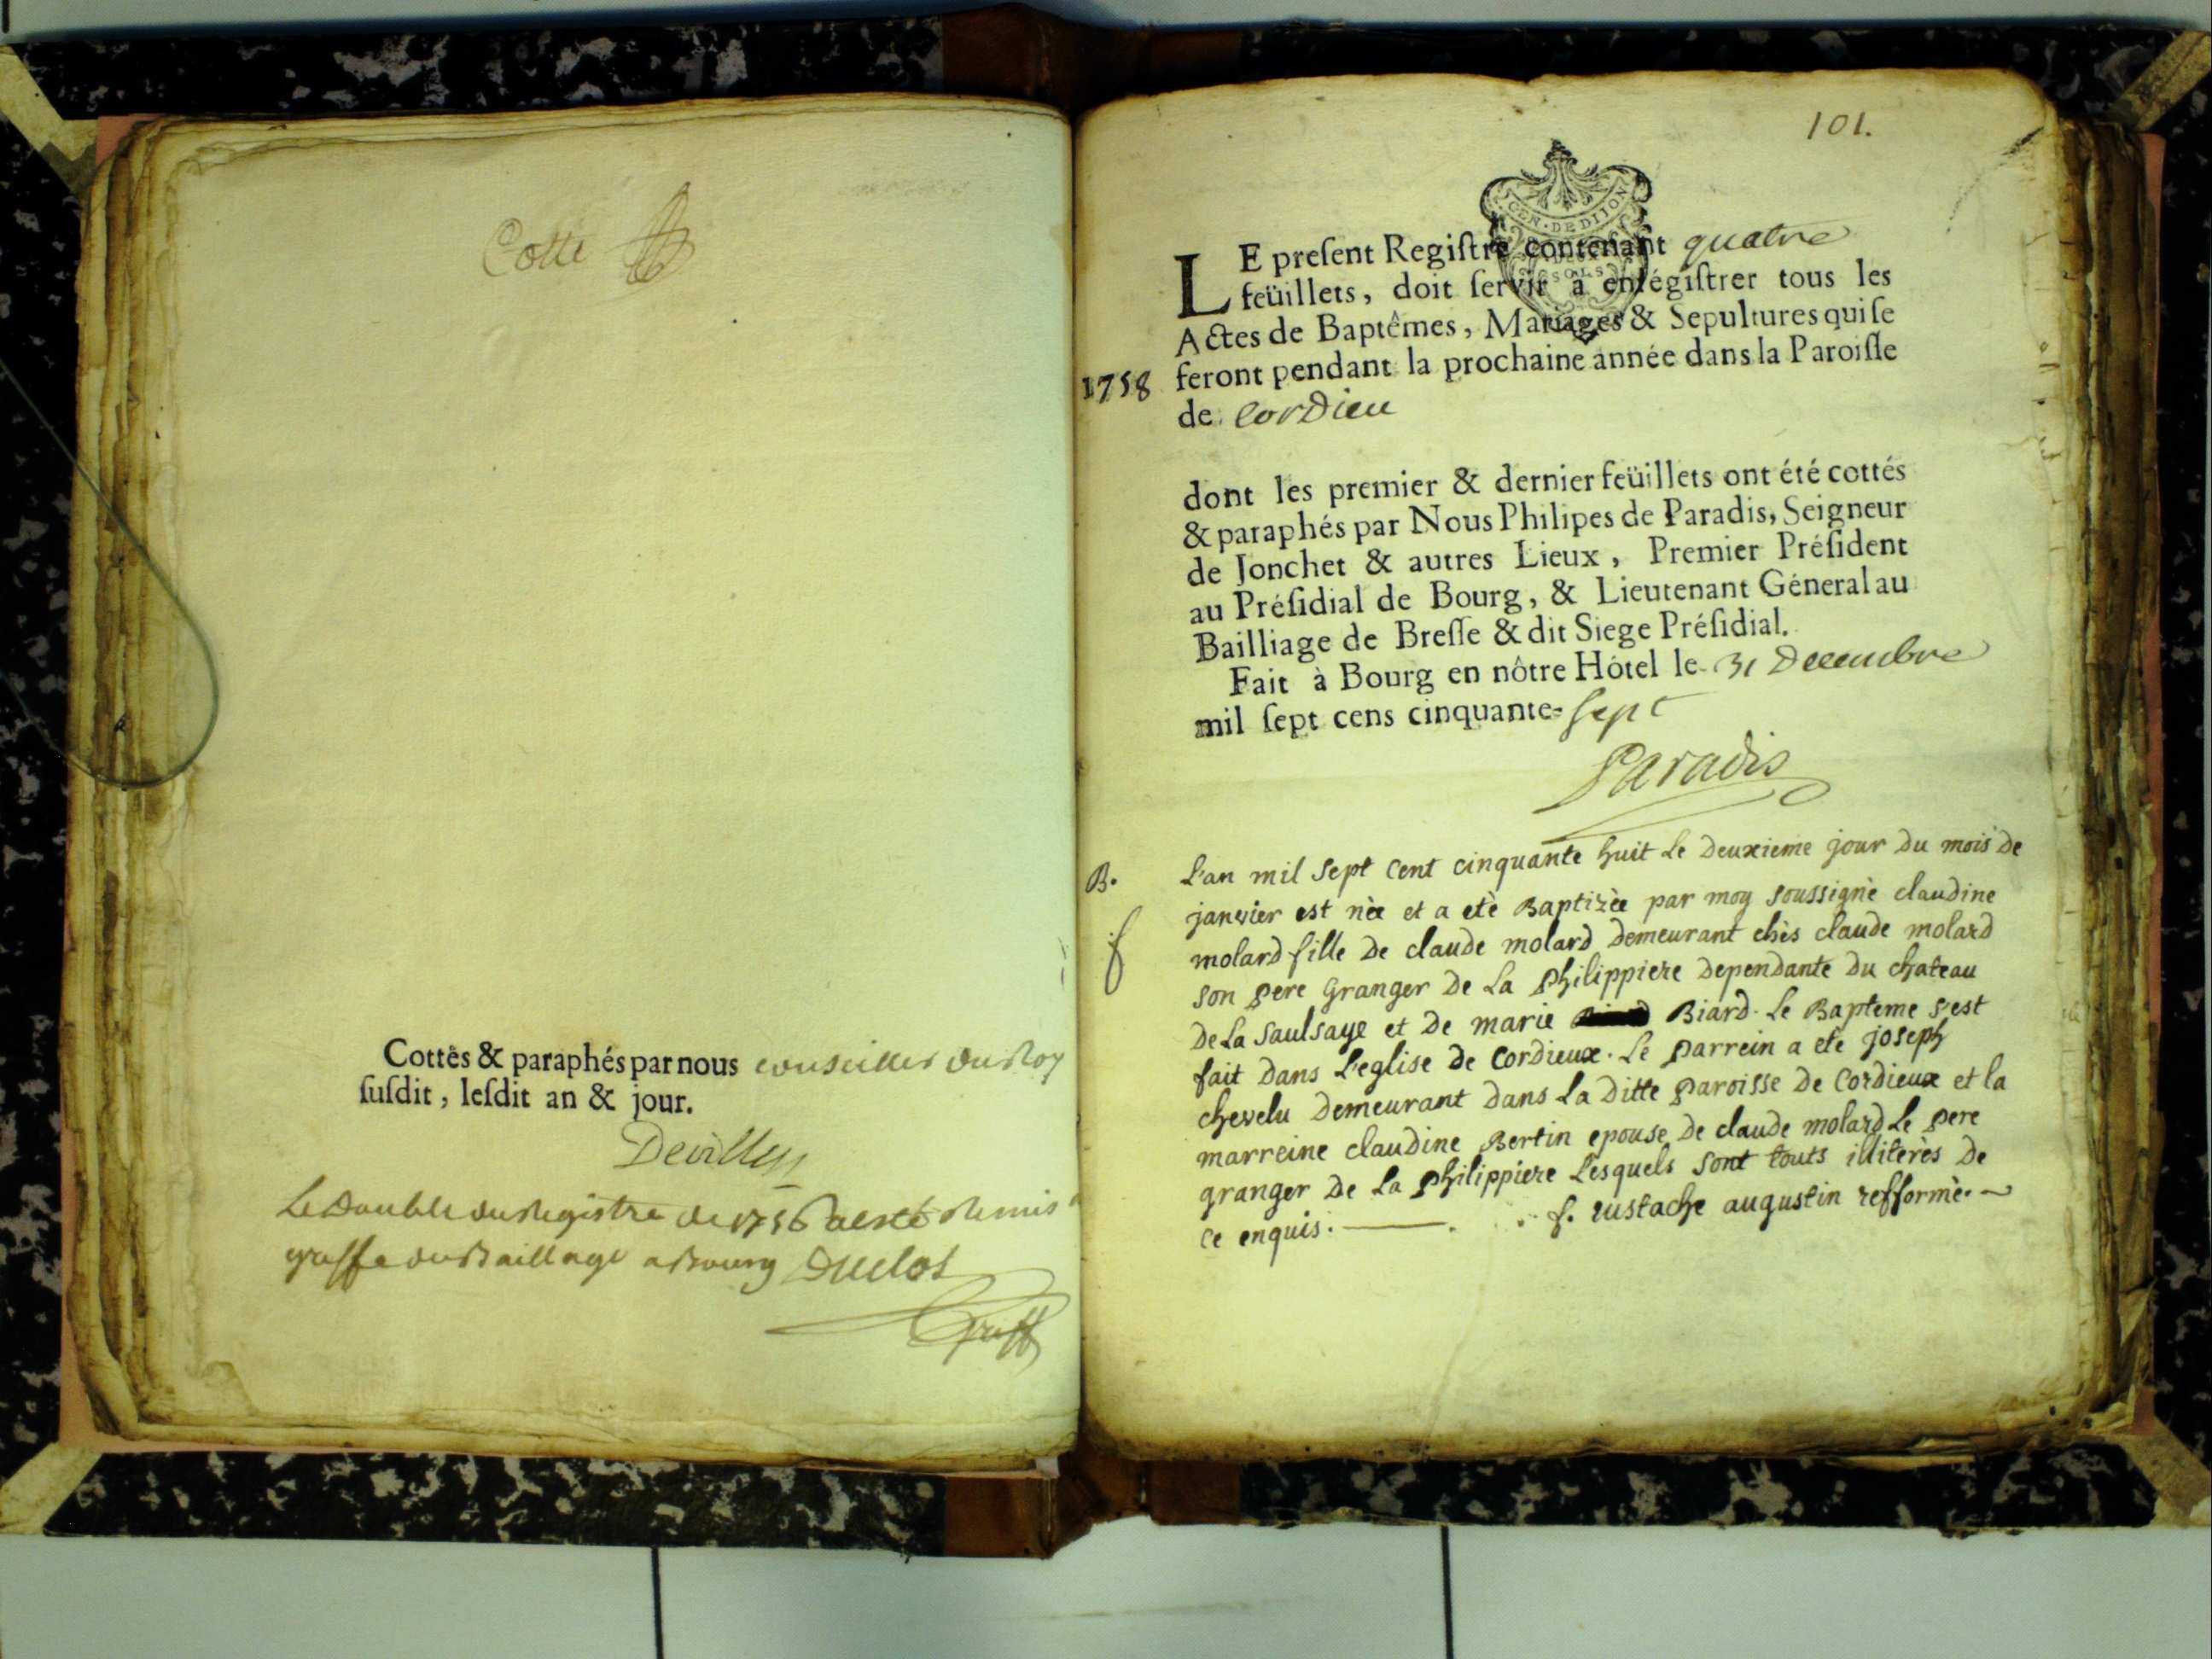 Cotte
Cottés & paraphés par nous conseiller du Roy
susdit, lesdit an & jour.
Devilleys
Le Double du Registre de 1756 a esté Remis
greffe du Baillage a Bourg Duclos
Greff
101.
GEN·DE DIJON
SOLS
LE present Registre contenant quatre
feüillets, doit servir à enrégistrer tous les
Actes de Baptêmes, Mariages & Sepultures qui se
1758 feront pendant la prochaine année dans la Paroisse
de Cordieu
dont les premier & dernier feüillets ont été cottés
& paraphés par Nous Philipes de Paradis, Seigneur
de Jonchet & autres Lieux, Premier Président
au Présidial de Bourg, & Lieutenant Géneral au
Bailliage de Bresse & dit Siege Présidial.
Fait à Bourg en nôtre Hôtel le 31 Decembre
mil sept cens cinquante-sept
Paradis
B. L'an mil sept cent cinquante huit le deuxieme jour du mois de
janvier est nèe et a etè Baptizèe par moy soussignè claudine
f molard fille de claude molard demeurant chès claude molard
son pere Granger de La philippiere dependante du chateau
de La saulsaye et de marie Biard. Le Bapteme s'est
fait dans L'eglise de Cordieux. Le parrein a ete joseph
chevelu demeurant dans La ditte paroisse de Cordieux et la
marreine claudine Bertin epouse de claude molard Le pere
granger de La philippiere Lesquels sont touts illiterès de
ce enquis. f. eustache augustin refformè.